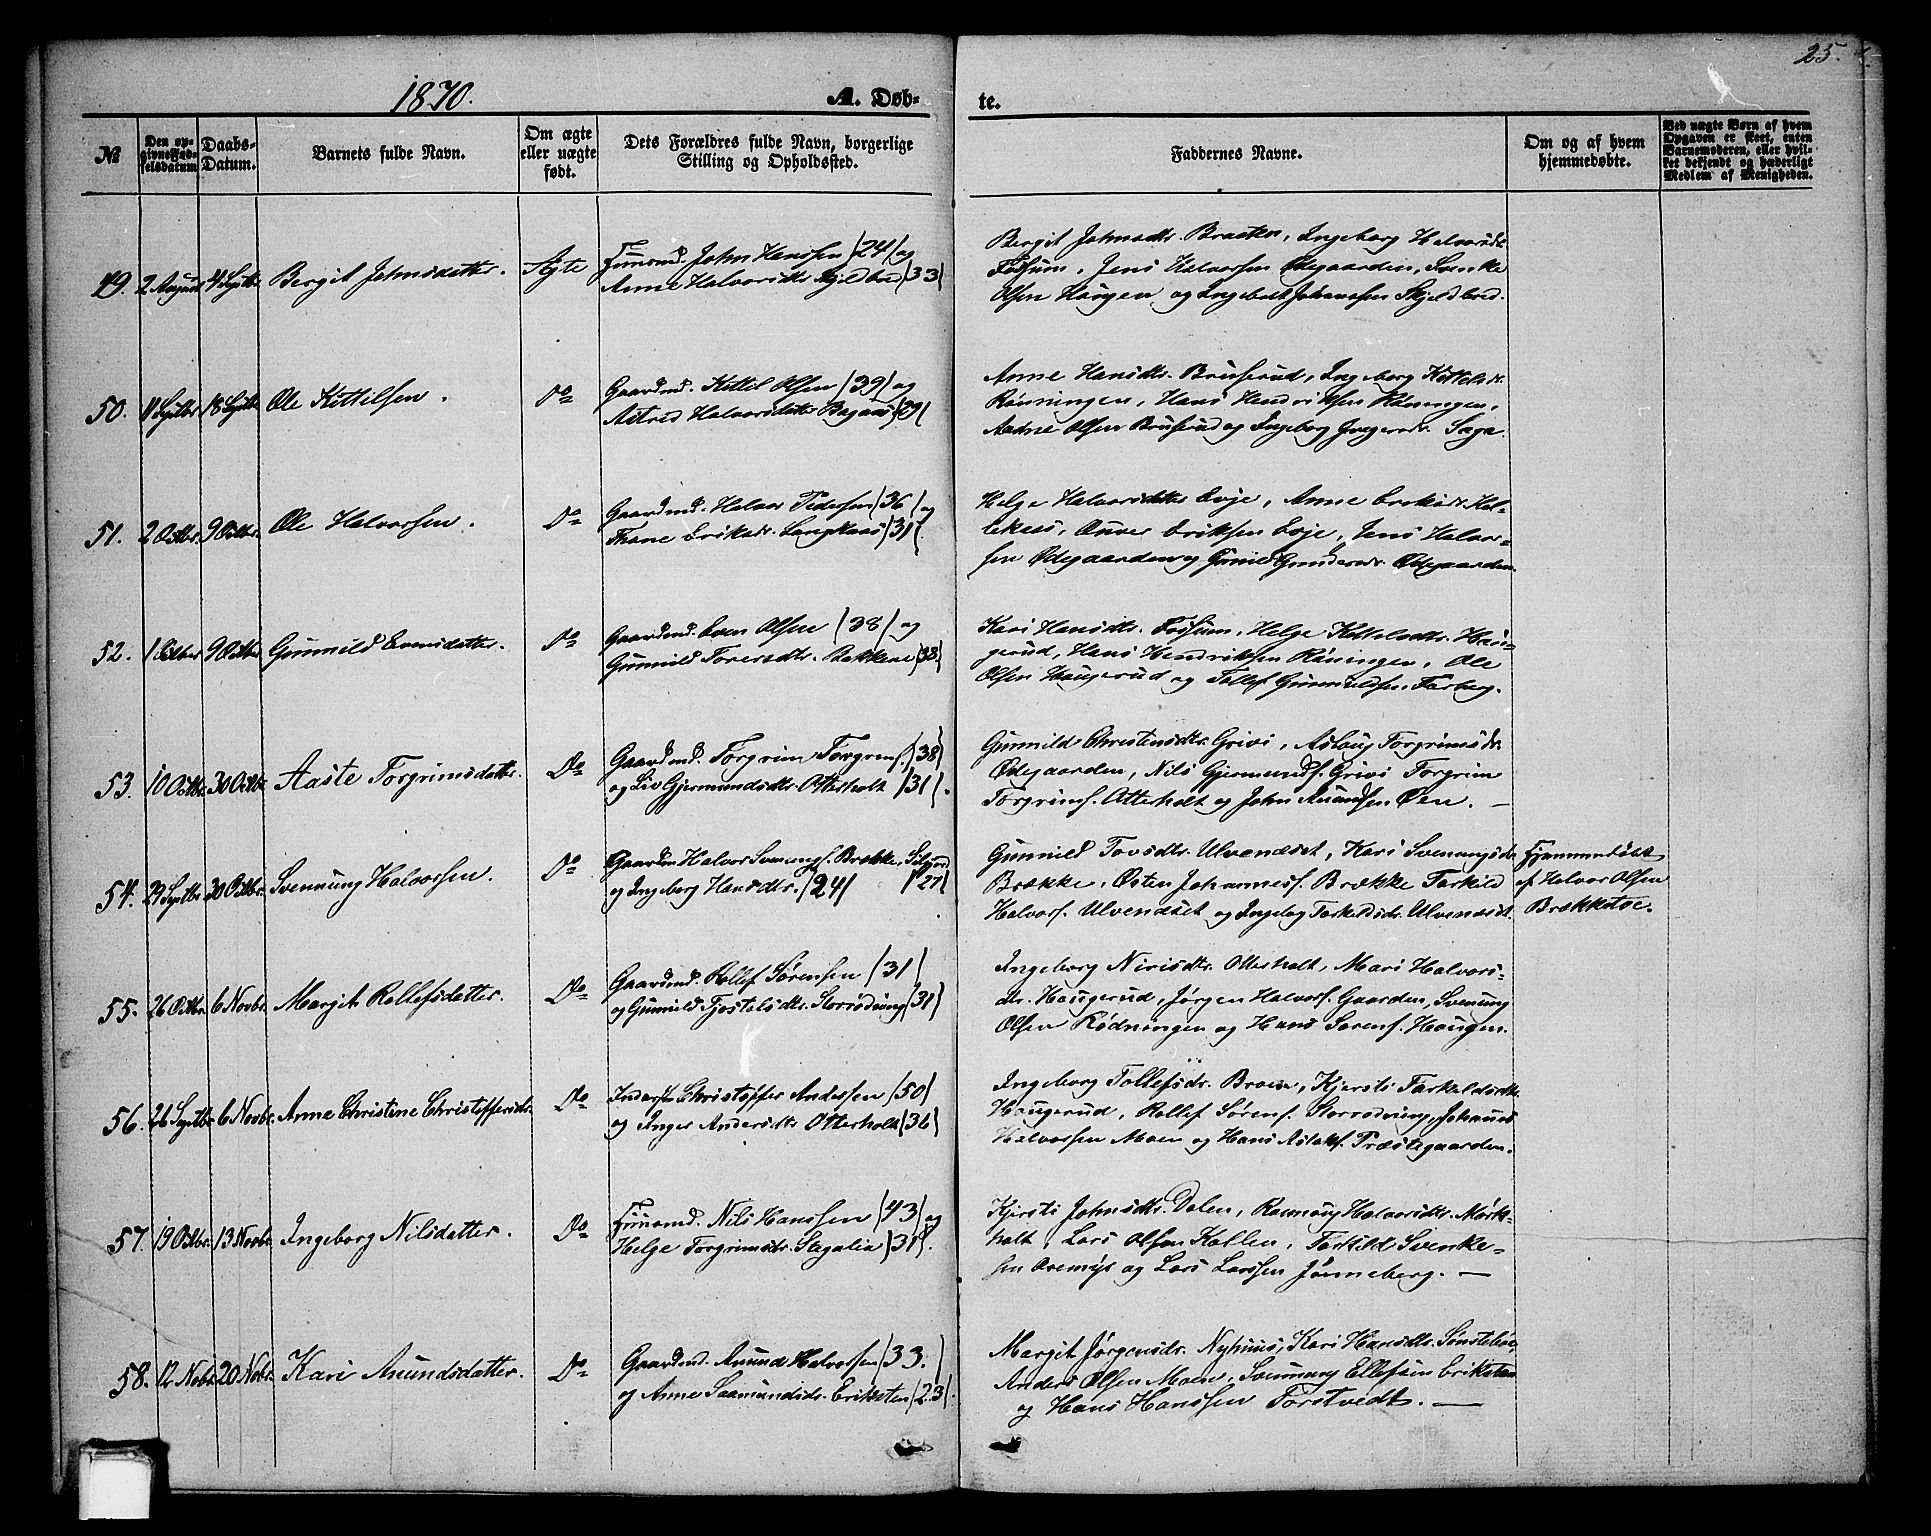 25.
1870.
A. Døb-
te.
№
Den op-
givne Fød-
selsdatum
Daabs-
Datum.
Barnets fulde Navn.
Om ægte
eller uægte
født.
Dets Forældres fulde Navn, borgerlige
Stilling og Opholdssted.
Faddernes Navne.
Om og af hvem
hjemmedøbte.
Ved uægte Børn af hvem
Opgaven er skeet, enten
Barnemoderen, eller hvil-
ket bekjendt og hæderligt
Medlem af Menigheden.
49. 2 August 4 Septbr. Bergit Johnsdatter. Ægte
Huusmd. John Hanssen (24) og
Anne Halvorsdtr. Skjeldbred (33)
Bergit Johnsdtr. Braaten, Ingeborg Halvorsdtr.
Fossum, Jens Halvorsen Ødegaarden, Svenke
Olsen Haugen og Ingebret Johanssen Skjeldbred.
50. 11 Septbr 18 Septbr. Ole Kittilsen. Do
Gaardmd. Kittil Olsen (39) og
Astrid Halvorsdatter Bagaas (29)
Anne Hansdtr. Bruserud, Ingeborg Kittelsdr.
Rønningen, Hans Hendriksen Rønningen,
Aadne Olsen Bruserud og Ingeborg Saga.
51. 2 Octbr. 9 Octbr. Ole Halvorsen. Do
Gaardmd. Halvor Pedersen (36) og
Thone Eriksdr. Langkaas (31).
Helge Halvorsdatter Evje, Anne Eriksdr.
Eriksen Evje, Jens Halvor-
sen Ødegaarden og Gunild Gundersdr. Ødegaarden.
52. 1 Octber 9 Octber Gunnild Evensdatter. Do
Gaardmd. Even Olsen (38) og
Gunnild Toresdtr. Bakkene (38)
Kari Hansdtr. Fossum, Helge Kittelsdtr. Hau-
gerud, Hans Hendriksen Rønningen, Ole
Olsen Haugerud og Tollef Gunnuldsen Farberg.
53. 10 Octbr. 30 Octbr. Aaste Torgrimsdatter. Do
Gaardmd. Torgrim Torgrims. (38)
og Liv Gjermundsdtr. Otterholt (31).
Gunnild Christensdtr. Grivi, Aslaug Torgrimsdr.
Ødegaarden, Nils Gjermunds. Grivi Torgrim
Torgrims. Otterholt og John Amundsen Øen. —
54. 29 Septbr. 30 Octbr. Svennung Halvorsen. Do
Gaardm. Halvor Svennungs. Brække,
og Ingeborg Hansdtr. (24) (27)
Gunnild Tovsdtr. Ulvenæset, Kari Svenungsdr.
Brække, Østen Johannesf. Brække Tarkild
Halvors. Ulvenæset og Ingebog Tarkildsdr. Ulvenæset.
Hjemmedøbt
af Halvor Olsen
Brækketøe.
55. 26 Octbr. 6 Novbr. Margit Rollefsdatter. Do
Gaardmd. Rollef Sørensen (31)
og Gunnild Tjostelsdtr. Storrødning (31)
Ingeborg Nirisdtr. Otterholt, Mari Halvors-
dtr. Haugerud, Jørgen Halvors. Gaarden, Svenung
Olsen Rødningen og Hans Sørens. Haugen.
56. 26 Septbr 6 Novbr. Anne Christine Christoffersdr. Do
Inderst Christoffer Andersen (50)
og Inger Andersdtr. Otterholt (36)
Ingeborg Tollefsdr. Kjersti Tarkeldsdtr.
Haugerud, Rollef Sørens. Storrødning, Johannes
Halvorsen Moen og Hans Aslaks. Præstegaarden.
57. 19 Octbr. 13 Novbr. Ingeborg Nilsdatter. Do
Huusmd. Nils Hanssen (43) og
Helge Torgrimsdr. Stegalia (31).
Kjersti Johnsdtr. Dalen, Rannaug Halvorsdtr. Mørk-
holt, Lars Olsen Kollen, Tarkild Svenke-
sen og Lars Larssen Jønneberg. —
58. 12 Novbr. 20 Novbr. Kari Anundsdatter. Do
Gaardmd. Anund Halvorsen (33.)
og Anne Saamundsdr. Eriksten (23).
Margit Jørgensdr. Nyhuus, Kari Hansdtr. Sønstebøe,
Anders Olsen Moen, Svennung Ellefsen Eriksten
og Hans Hanssen Torstvedt. —